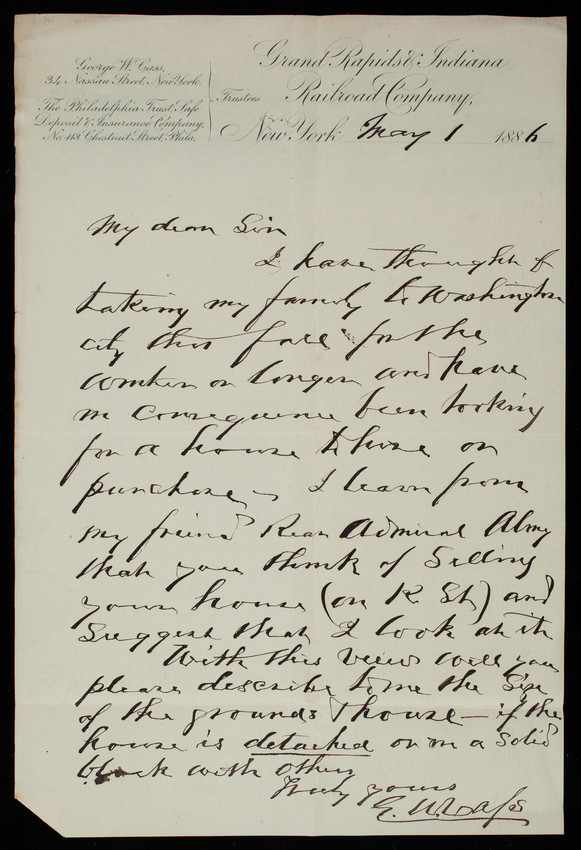 George W. Cass,
34 Nassau Street, New York.
The Philadelphia Trust, Safe
Deposit & Insurance Company,
No. 413 Chestnut Street, Phila.
Trustees
Grand Rapids & Indiana
Railroad Company,
New York May 1 1886
My dear Sir
I have thought of
taking my family to Washington
city this fall for the
winter or longer and have
in consequence been looking
for a house to hire or
purchase – I learn from
my friend Rear Admiral Almy
that you think of Selling
your house (on K St) and
Suggest that I look at it
With this view will you
please describe to me the Size
of the grounds & house – if the
house is detached or in a solid
block with others
Truly yours
G. W. Cass